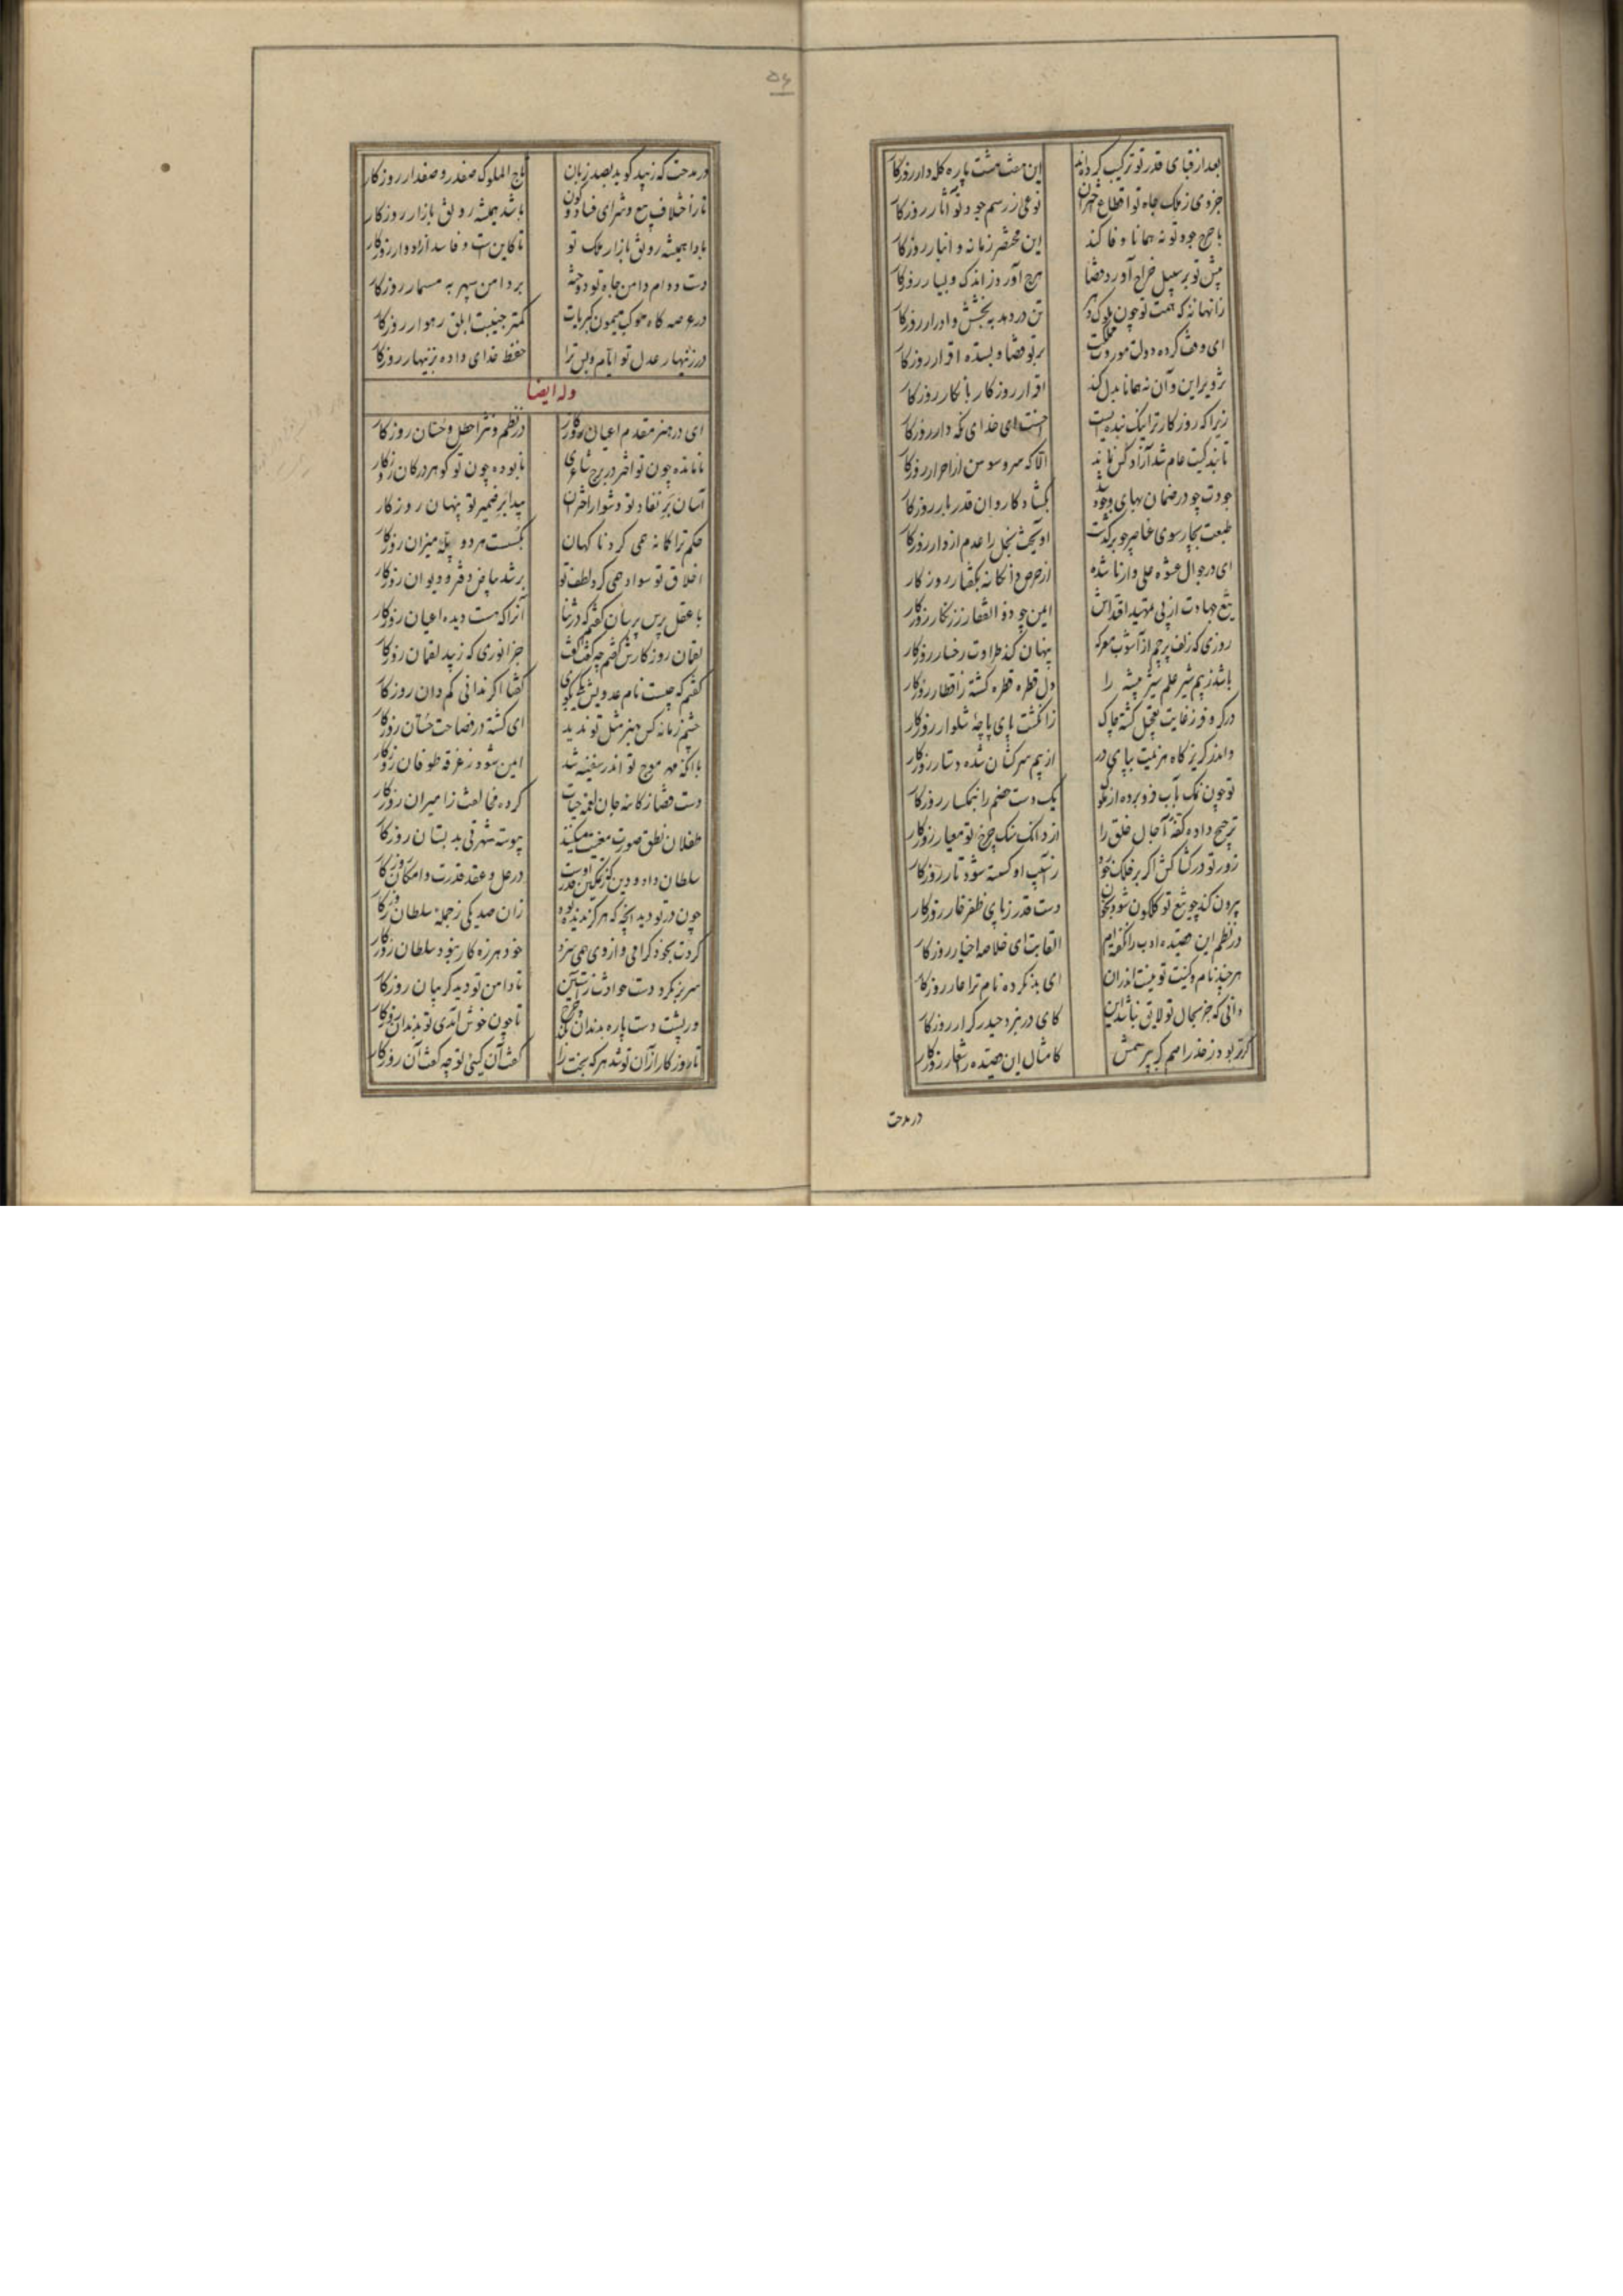 ۵۶
بعد از قبای قدر تو ترکیب کرده‌اند این هفت هشت پاره کله‌وار روزکار
جزوی ز ملک جاه تو اقطاع اختران نوعی ز رسم جود تو آثار روزکار
با خرج جود تو نه همانا وفا کند این مختصر زمانه و انبار روزکار
پیش تو بر سبیل خراج آورد قضا هرچ آورد ز اندک و بسیار روزکار
زانها نه که همت تو چون ملوک تن در دهد به بخشش و ادرار روزکار
ای وقف کرده دولت موروث مملکت بر تو قضا و بستده اقرار روزکار
تزویر این و آن نه همانا بدل کند اقرار روزکار بانکار روزکار
زیرا که روزکار ترا نیک بنده ایست احسنت ای خدای نکه‌دار روزکار
تا بندکیت عام شد آزاد کس نماند الا که سرو سوسن از احرار روزکار
جودت چو در ضمان بهای وجود شد بکشاد کاروان قدر بار روزکار
طبعت بچار سوی عناصر چو برکذشت آویخت بخل را عدم از دار روزکار
ای در جوال عشوه علی‌وار ناشده از حرص دانکانه بکفتار روزکار
تیغ جهادت از پی تمهید اقتداش ایمن چو ذوالفقار ز زنکار روزکار
روزی که زلف پرچم از آشوب معرکه پنهان کند طراوت رخسار روزکار
باشد ز بیم شیر علم شیر بیشه را دل قطره قطره کشته ز اقطار روزکار
در کر و فر ز غایت تعجیل کشته چاک ز انکشت پای پاچه شلوار روزکار
و اندر کریزکاه هزیمت بپای در از بیم سرکشان شده دستار روزکار
تو چون نهنک بآب فروبرده یک دست خصم را نبکسار روزکار
ترجیح داده کفه آجال خلق را از دانک سنک چرخ تو معیار روزکار
زور تو در کشاکش اکر بر فلک خورد ز آسیب او کسسته شود تار روزکار
بیرون کند چو تیغ تو کلکون شود بخون دست قدر ز پای ظفر خار روزکار
در نظم این قصیده ادب را نکفته‌ایم القابت ای خلاصه اخیار روزکار
هر چند نام و کنیت تو نیست اندران ای بد نکرده نام ترا عار روزکار
دانی که جز بحال تو لایق نباشد این کای در نبرد حیدر کرار روزکار
کامثال این قصیده ز اشعار روزکار
در مدحت
در مدحت که زیبد کوید بصد زبان تاج الملوک صفدر و صفدار روزکار
تا ز اختلاف بیع و شرای فساد و کون باشد همیشه رونق بازار روزکار
بادا همیشه رونق بازار ملک تو تا کاین است و فاسد از ادوار روزکار
دست دوام دامن جاه تو دوخته بر دامن سپهر به مسمار روزکار
در عرصه کاه موکب میمون کبریات کمتر جنیبت ابلق رهوار روزکار
در زینهار عدل تو ایام و پس ترا حفظ خدای داده بزنهار روزکار
وله ایضا
ای در هنر مقدم اعیان روزکار در نظم و نثر اخطل و حسان روزکار
نامانده چون تو اختر در برج شاعری نابوده چون تو کوهر در کان روزکار
آسان بر نفاذ تو دشوار اختران پیدا بر ضمیر تو پنهان روزکار
حکم ترا کانه همی کرد ناکهان بکسست هر دو پله میزان روزکار
اخلاق تو سواد همی کرد لطف تو پر شد بیاض دفتر و دیوان روزکار
با عقل پرس پرسان کفتم که در ثنا آنرا که هست دیده اعیان روزکار
لقمان روزکارش کفتم چه کفت کفت جز انوری که زیبد لقمان روزکار
کفتم که چیست نام عدویش نمیکوی کفتا اکر ندانی کم دان روزکار
چشم زمانه کس بهنر مثل تو ندید ای کشته در فصاحت حسان روزکار
با آنکه مهر موج تو اندر سفینه شد ایمن شود ز غرقه طوفان روزکار
دست قضا ز کاسه جان لقمه حیات کرده مخالفت را میزان روزکار
طفلان نطق صورت مغیبت میکنند پیوسته شهرتی بدبستان روزکار
سلطان داد و دین کز تمکین قدر اوست در حل و عقد قدرت و امکان روزکار
چون در تو دید آنچه که هرکز ندیده بود زان صد یکی ز جمله سلطان روزکار
کردت بخود کرامی و از وی همی سزد خود هرزه کار نبود سلطان روزکار
سر بر نکرد دست حوادث ز آستین تا دامن تو دید کریبان روزکار
ور پشت دست پاره بدندان کند چرخ تا چون خوش آمدی تو بدندان روزکار
تا روزکار از آن تو شد هر که بخت را کفت آن کیئی تو چه کفت آن روزکار